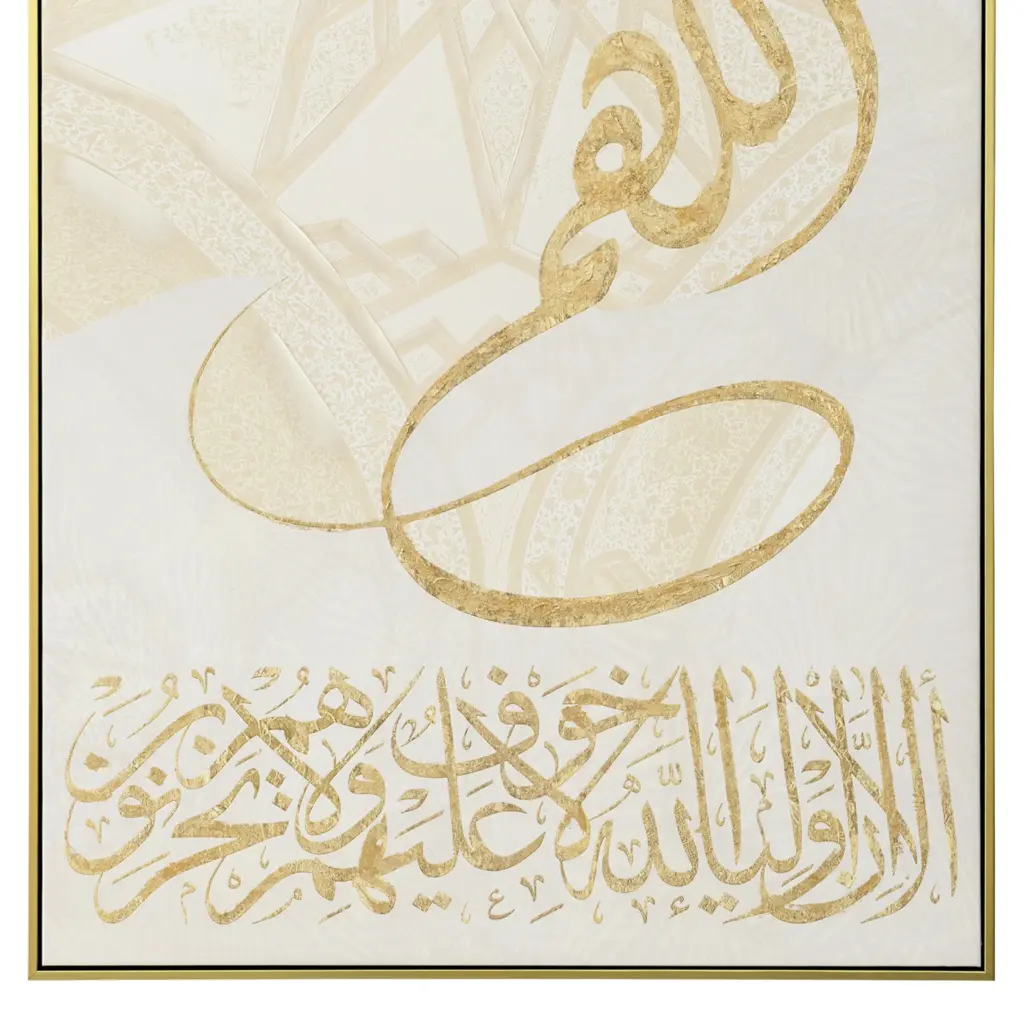 اللهم
أَلَا إِنَّ أَوْلِيَاءَ اللَّهِ لَا خَوْفٌ عَلَيْهِمْ وَلَا هُمْ يَحْزَنُونَ